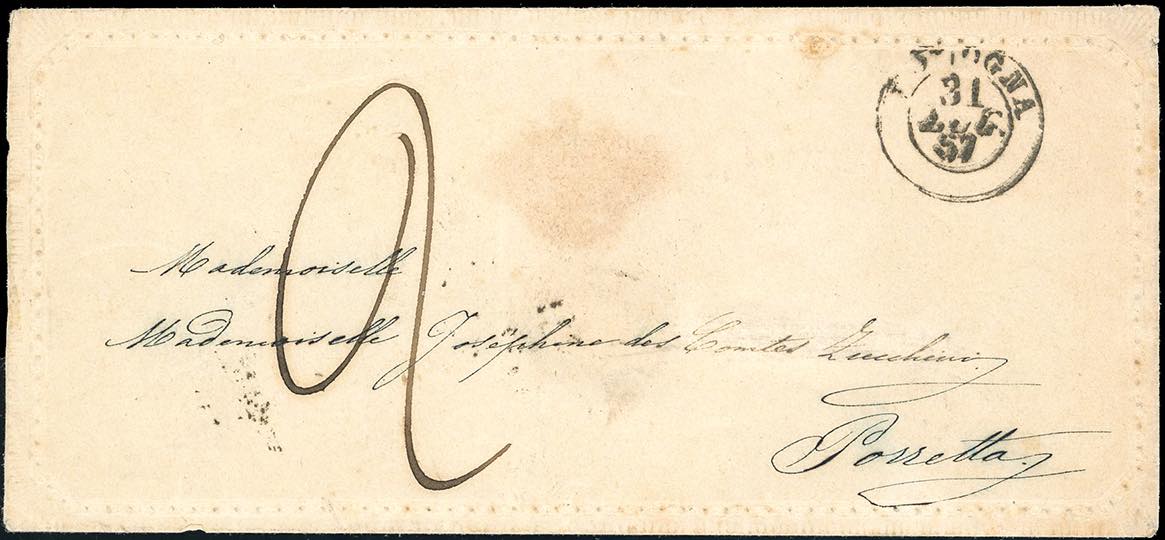 BOLOGNA
31
LUG
57
2
Mademoiselle
Mademoiselle Joséphine des Comtes Zucchini
Porretta.